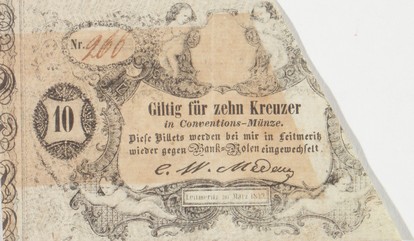 Nr. 900
10
Giltig für zehn Kreuzer
in Conventions-Münze.
Diese Billets werden bei mir in Leitmeritz
wieder gegen Bank-Noten eingewechselt.
C. W. Medau
Leitmeritz, im März 1849.